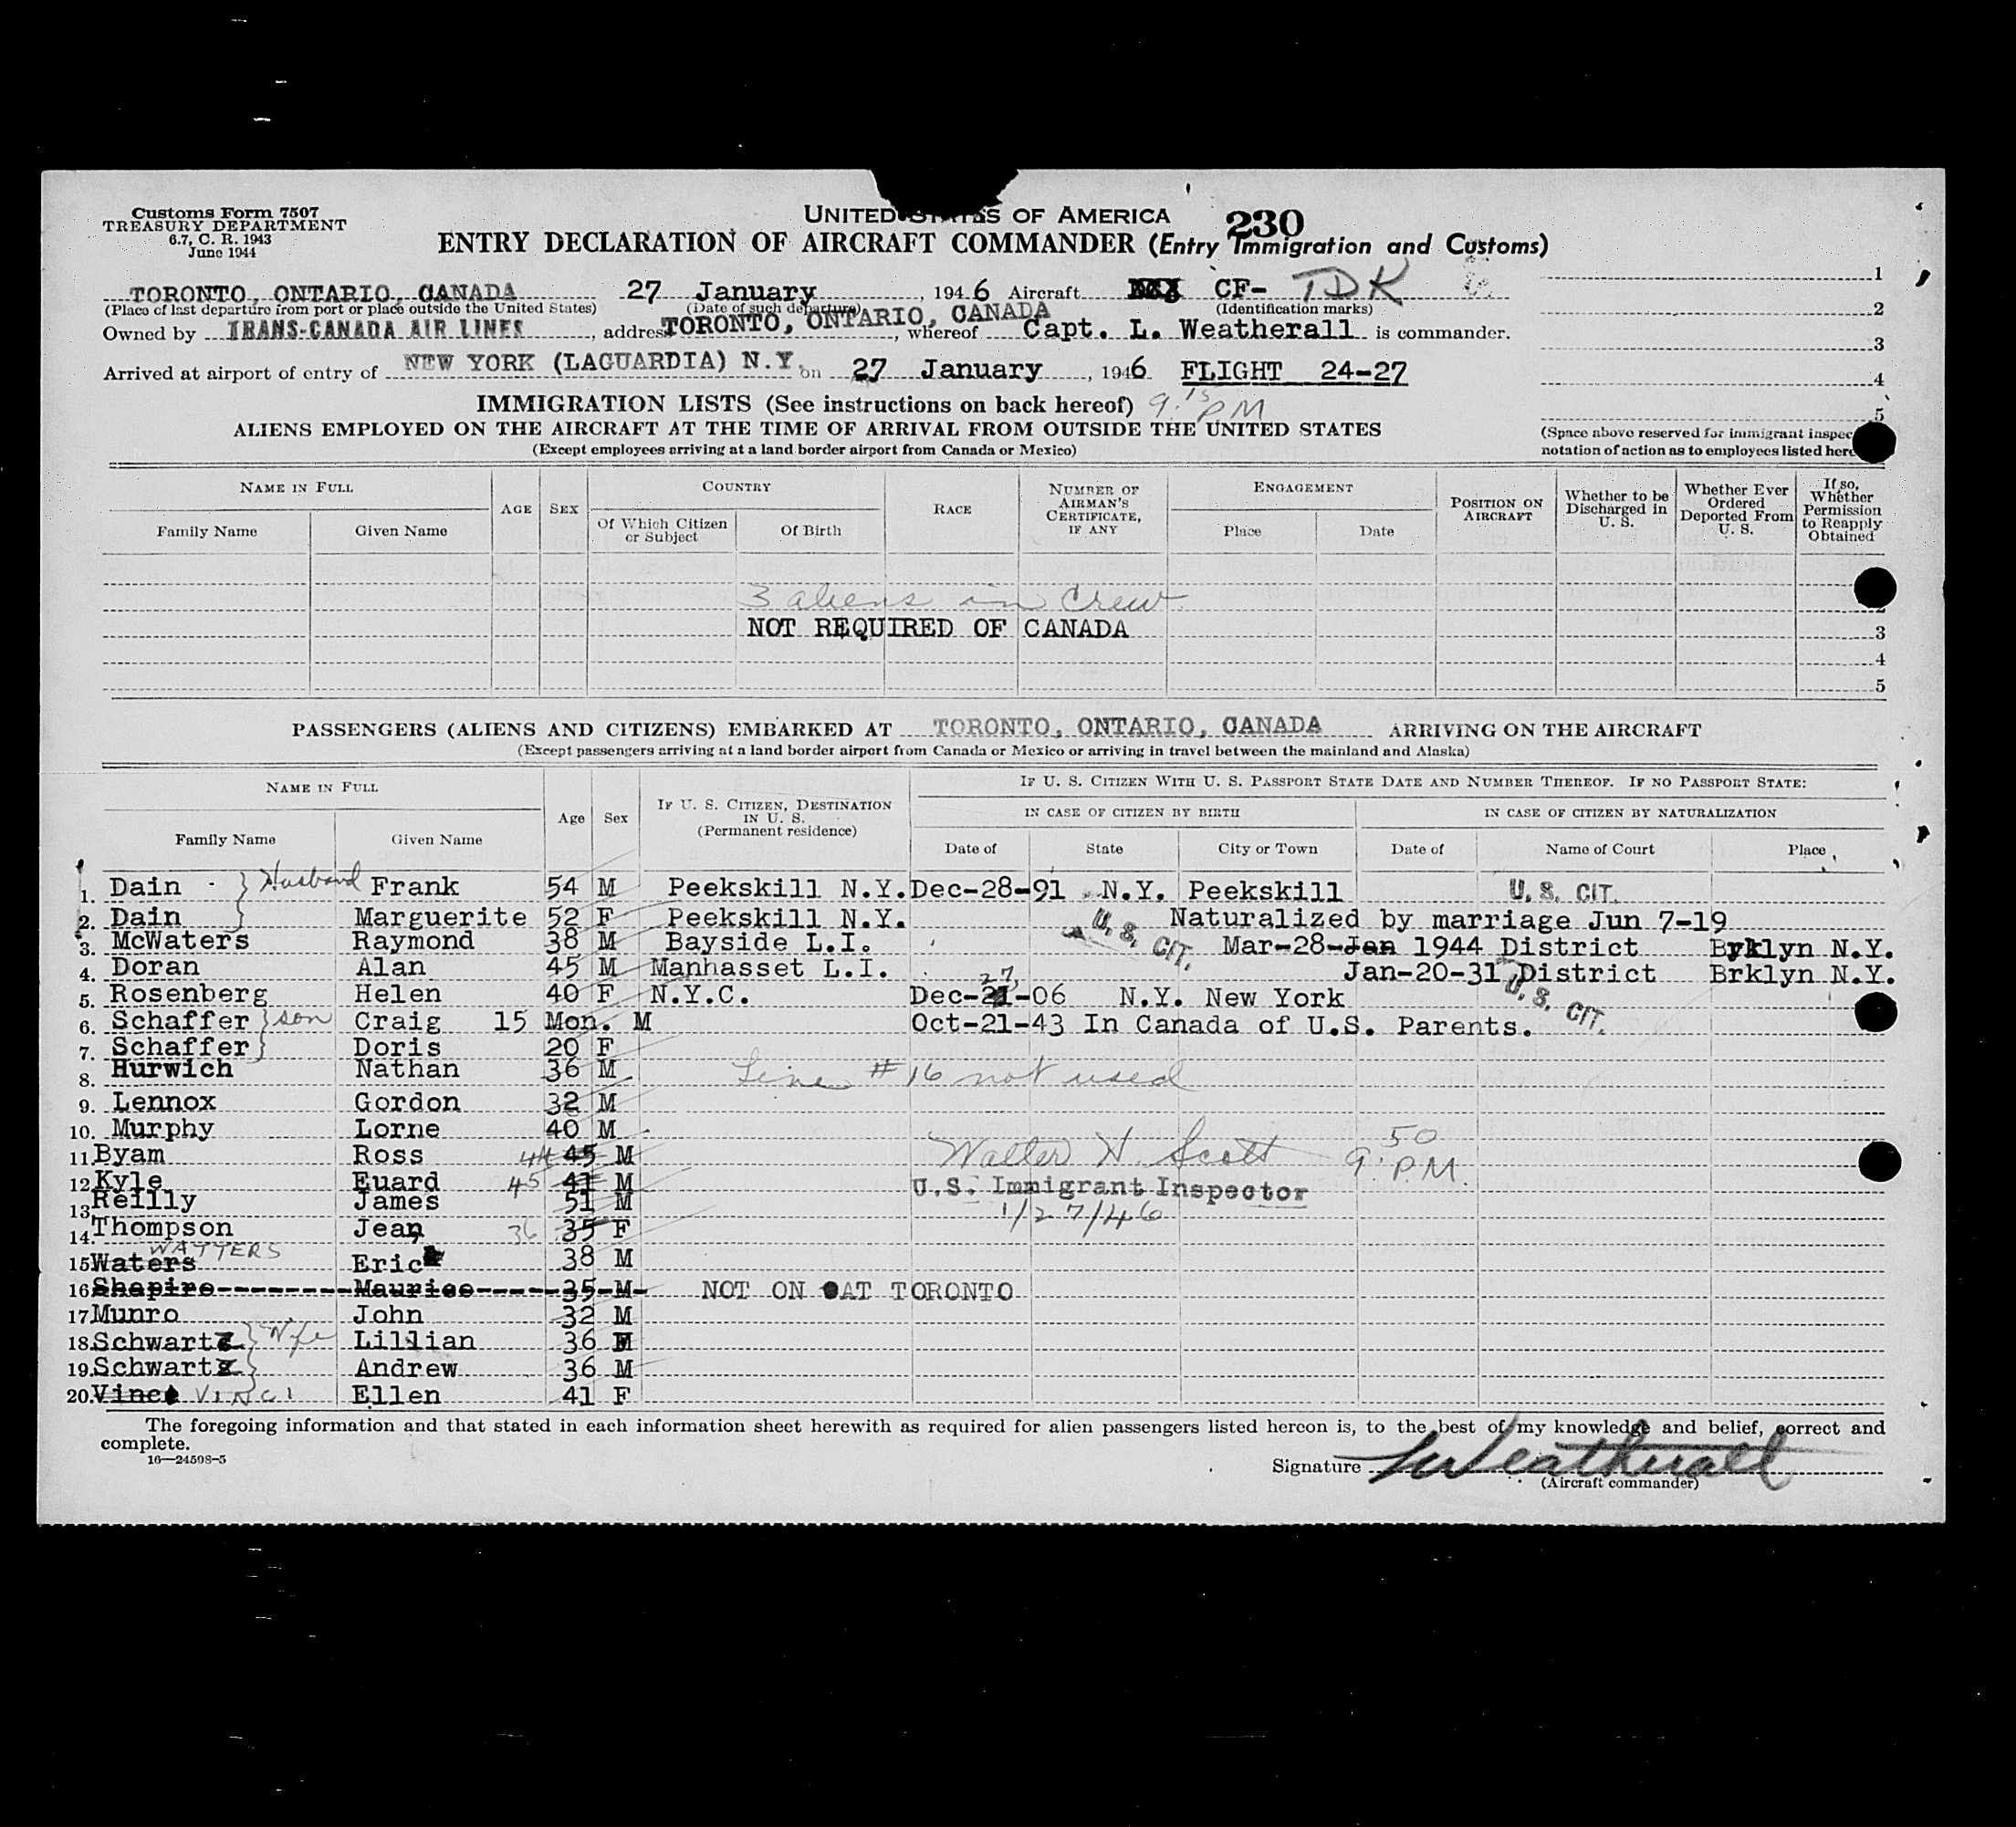 Customs Form 7507
TREASURY DEPARTMENT
6.7, C. R. 1943
June 1944
UNITED STATES OF AMERICA
230
ENTRY DECLARATION OF AIRCRAFT COMMANDER (Entry Immigration and Customs)
TORONTO, ONTARIO, CANADA 27 January, 1946 Aircraft CF- TDK
(Place of last departure from port or place outside the United States) (Date of such departure) (Identification marks)
Owned by TRANS-CANADA AIR LINES, address TORONTO, ONTARIO, CANADA, whereof Capt. L. Weatherall is commander.
Arrived at airport of entry of NEW YORK (LAGUARDIA) N.Y. on 27 January, 1946 FLIGHT 24-27
1
2
3
4
5
(Space above reserved for immigrant inspec
notation of action as to employees listed here
IMMIGRATION LISTS (See instructions on back hereof) 9:15 PM
ALIENS EMPLOYED ON THE AIRCRAFT AT THE TIME OF ARRIVAL FROM OUTSIDE THE UNITED STATES
(Except employees arriving at a land border airport from Canada or Mexico)
NAME IN FULL AGE SEX COUNTRY RACE NUMBER OF AIRMAN'S CERTIFICATE, IF ANY ENGAGEMENT POSITION ON AIRCRAFT Whether to be Discharged in U. S. Whether Ever Ordered Deported From U. S. If so, Whether Permission to Reapply Obtained
Family Name Given Name Of Which Citizen or Subject Of Birth Place Date
3 aliens in Crew 2
NOT REQUIRED OF CANADA 3
4
5
PASSENGERS (ALIENS AND CITIZENS) EMBARKED AT TORONTO, ONTARIO, CANADA ARRIVING ON THE AIRCRAFT
(Except passengers arriving at a land border airport from Canada or Mexico or arriving in travel between the mainland and Alaska)
NAME IN FULL Age Sex IF U. S. CITIZEN, DESTINATION IN U. S. (Permanent residence) IF U. S. CITIZEN WITH U. S. PASSPORT STATE DATE AND NUMBER THEREOF. IF NO PASSPORT STATE:
IN CASE OF CITIZEN BY BIRTH IN CASE OF CITIZEN BY NATURALIZATION
Family Name Given Name Date of State City or Town Date of Name of Court Place
1. Dain Husband Frank 54 M Peekskill N.Y. Dec-28-91 N.Y. Peekskill U. S. CIT.
2. Dain Marguerite 52 F Peekskill N.Y. U. S. CIT. Naturalized by marriage Jun 7-19
3. McWaters Raymond 38 M Bayside L.I. Mar-28-Jan 1944 District Brklyn N.Y.
4. Doran Alan 45 M Manhasset L.I. Jan-20-31 District Brklyn N.Y.
5. Rosenberg Helen 40 F N.Y.C. Dec-21-06 27 N.Y. New York U. S. CIT.
6. Schaffer son Craig 15 Mon. M Oct-21-43 In Canada of U.S. Parents.
7. Schaffer Doris 20 F
8. Hurwich Nathan 36 M Line #16 not used
9. Lennox Gordon 32 M
10. Murphy Lorne 40 M
11. Byam Ross 44 45 M Walter H. Scott 9:50 P.M.
12. Kyle Euard 45 41 M U.S. Immigrant Inspector
13. Reilly James 51 M 1/27/46
14. Thompson Jean 36 35 F
15. Waters WATTERS Eric 38 M
16. Shapiro Maurice 35 M NOT ON AT TORONTO
17. Munro John 32 M
18. Schwartz Wife Lillian 36 F
19. Schwartz Andrew 36 M
20. Vince VINCI Ellen 41 F
The foregoing information and that stated in each information sheet herewith as required for alien passengers listed hereon is, to the best of my knowledge and belief, correct and
complete.
16—24598-5
Signature L Weatherall
(Aircraft commander)